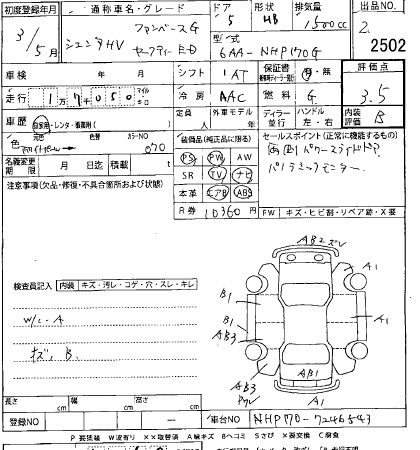 初度登録年月 通称車名・グレード ドア 形状 排気量 出品NO
3/5月 シエンタHV ファンベースG セーフティED 5 HB 1500cc 2 2502
型式 6AA-NHP170G
車検 年 月 シフト 1AT 保証書 有・無 評価点
走行 17050 冷房 AAC 燃料 G 3.5
車歴 自家用・レンタ・ 定員 外車モデル ディーラー 並行 ハンドル 左・右 内装評価 B
色 元色 カラーNO 070 人 年
装備品(純正品に限る) セールスポイント(正常に機能するもの)
名義変更期限 月 日迄 積載 t
PS PW AW
SR TV ナビ
本革 エアB ABS
両側パワースライドドア
パノラミックモニター
注意事項(欠品・修復・不具合箇所および状態)
R券 10360円 FW キズ・ヒビ割・リペア跡・X要
検査員記入 内装 キズ・汚レ・コゲ・穴・スレ・キレ
W/C.A
キズ、B.
AB2
A1
B1
B1
AB3
A1
AB3
AB1
A1
長さ cm 幅 cm 高さ cm
登録NO 車台NO NHP170-7246543
P 要塗装 W波有り XX取替済 A線キズ Bヘコミ Sさび X要交換 C腐食